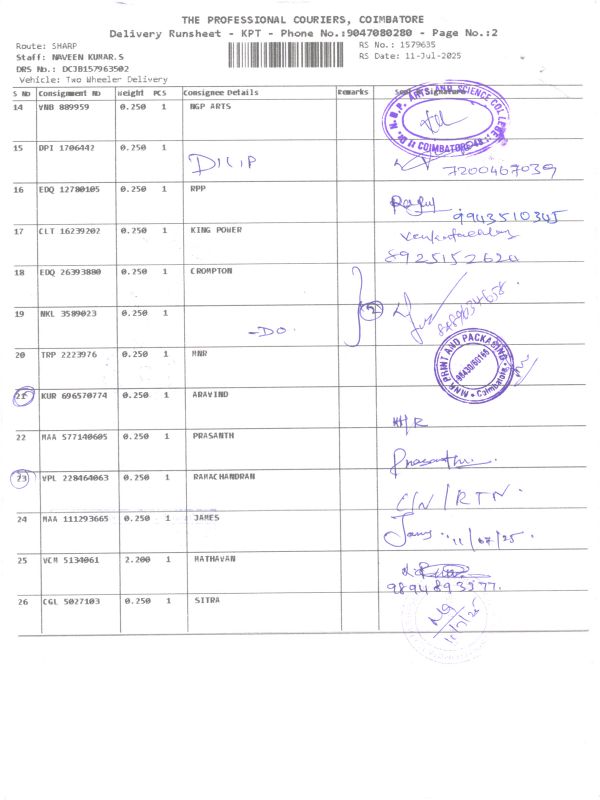 THE PROFESSIONAL COURIERS, COIMBATORE
Delivery Runsheet - KPT - Phone No.:9047080280 - Page No.:2
Route: SHARP
RS No.: 1579635
Staff: NAVEEN KUMAR.S
RS Date: 11-Jul-2025
DRS No.: DCJB157963502
Vehicle: Two Wheeler Delivery
S No Consignment No Weight PCS Consignee Details Remarks Signature
14 VNB 889959 0.250 1 NGP ARTS
Dr. N.G.P. ARTS AND SCIENCE COLLEGE COIMBATORE-48
15 DPI 1706442 0.250 1 DILIP
7200467039
16 EDQ 12780105 0.250 1 RPP
9943510345
17 CLT 16239202 0.250 1 KING POWER
8925152620
18 EDQ 26393880 0.250 1 CROMPTON
19 NKL 3589023 0.250 1 -DO. 2
20 TRP 2223976 0.250 1 MNR
MNR PRINT AND PACKAGING Coimbatore
21 KUR 696570774 0.250 1 ARAVIND
22 MAA 577140605 0.250 1 PRASANTH
Prasanth.
23 VPL 228464063 0.250 1 RAMACHANDRAN
C/N/RTN.
24 MAA 111293665 0.250 1 JAMES
11/07/25.
25 VCM 5134061 2.200 1 MATHAVAN
9894893277.
26 CGL 5027103 0.250 1 SITRA